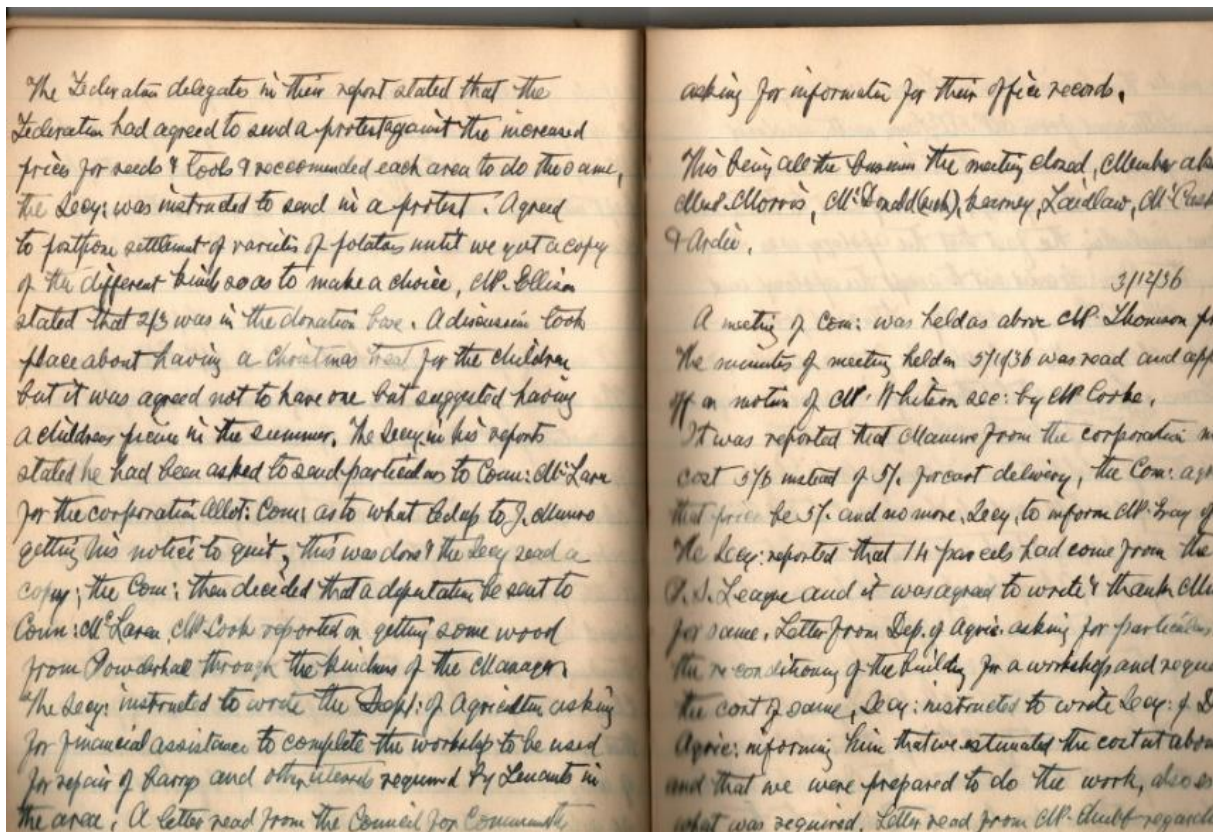 The Federation delegates in their report stated that the
Federation had agreed to send a protest against the increased
prices for seeds & tools & reccomended each area to do the same,
the Secy: was instructed to send in a protest. Agreed
to postpone settlement of varieties of potatoes until we got a copy
of the different kinds so as to make a choice, Mr. Ellison
stated that 2/3 was in the donation box. A discussion took
place about having a Christmas treat for the children
but it was agreed not to have one but suggested having
a childrens picnic in the summer. The Secy in his reports
stated he had been asked to send particulars to Coun: McLaren
for the corporation Allot: Com: as to what led up to J. Munro
getting his notice to quit, this was done & the Secy read a
copy; the Com: then decided that a deputation be sent to
Coun: McLaren Mr. Cook reported on getting some wood
from Powderhall through the kindness of the Manager.
The Secy: instructed to wrote the Dept: of Agriculture asking
for financial assistance to complete the workshop to be used
for repair of barrows and other utensils required by Tenants in
the area. A letter read from the Council for Community
asking for information for their office records.
This being all the business the meeting closed, Member
Morris, McDonald, Kearney, Laidlaw,
&
3/12/36
A meeting of Com: was held as above Mr. Thomson
The minutes of meeting held on 5/11/36 was read and
off on motion of Mr. Whitson sec: by Mr Cooke.
It was reported that Manure from the corporation
cost 5/6 instead of 5/. per cart delivery, the Com:
that price be 5/. and no more, Secy, to inform Mr. Gray
The Secy: reported that 14 parcels had come from the
P. S. League and it was agreed to write & thank
for same. Letter from Dep. of Agric. asking for particulars
the re conditioning of the building for a workshop and
the cost of same, Secy: instructed to write Secy: of
Agric: informing him that we estimated the cost at
and that we were prepared to do the work, also
what was required. Letter read from Mr. Chubb